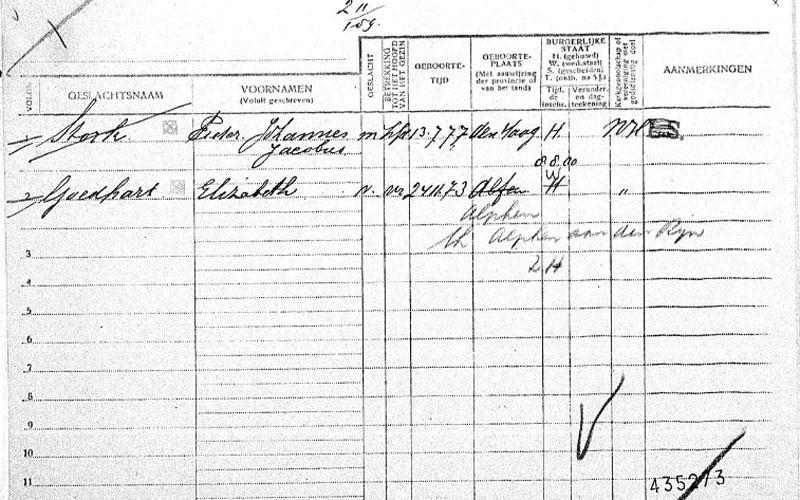 2 11/
109.
VOLGNo.
GESLACHTSNAAM
VOORNAMEN
(Voluit geschreven)
GESLACHT
BETREKKING
TOT HET HOOFD
VAN HET GEZIN
GEBOORTE-
TIJD
GEBOORTE-
PLAATS
(Met aanwijzing
der provincie of
van het land)
BURGERLIJKE
STAAT
H. (gehuwd)
W. (wed.staat)
S. (gescheiden)
T. (ontb. na 5 j.)
Tijd.
de
inschr.
Verander.
en dag-
teekening
Kerkgenootschap of
vereeniging met
godsdienstig doel
AANMERKINGEN
1 Stork Pieter Johannes m hfd 13.7.77 den Haag H NH
Jacobus
8.8.00
W
2 Goedhart Elizabeth v. vr 24.11.73 Alfen H "
Alphen
th Alphen aan den Rijn
Z.H
3
4
5
6
7
8
9
10
11
435273